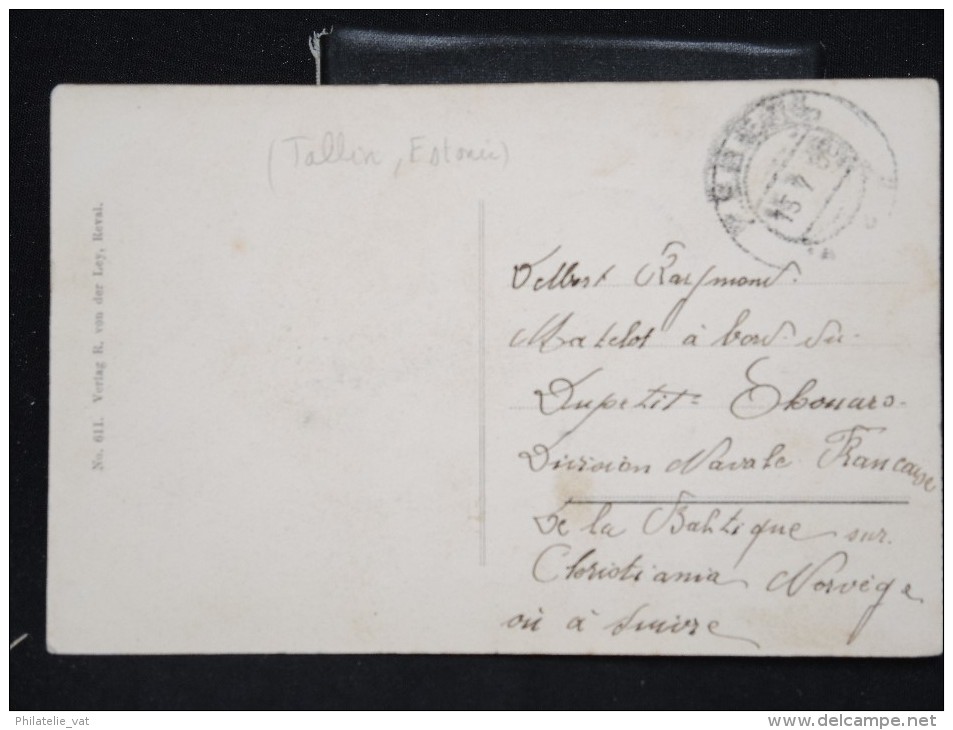 (Tallin, Estonie)
No. 611. Verlag R. von der Ley, Reval.
15 7
Delbost Raymond.
Matelot à bord du
Dupetit-Thouars
Division Navale Francaise
De la Baltique sur
Christiania Norvège
où à Suivre
Philatelie_vat
www.delcampe.net